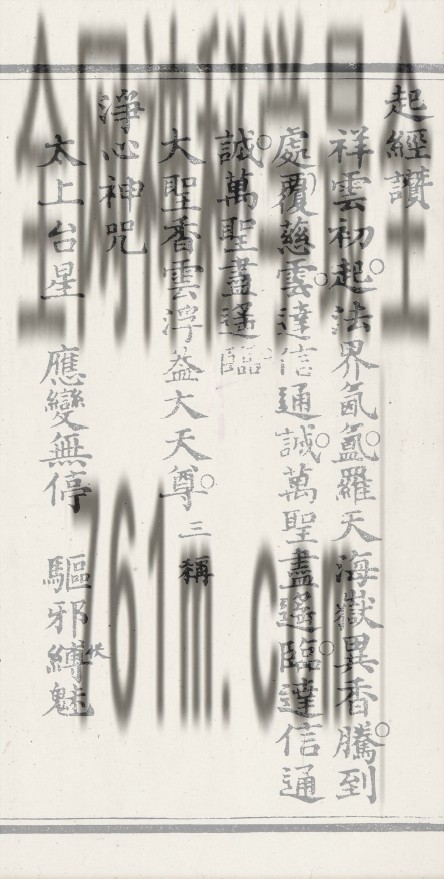 起經讚
祥雲初起法界氤氳羅天海嶽異香騰到
處覆慈雲達信通誠萬聖盡遙臨達信通
誠萬聖盡遙臨
大聖香雲浮盖大天尊三稱
淨心神咒
太上台星 應變無停 驅邪縛魅
761n. com